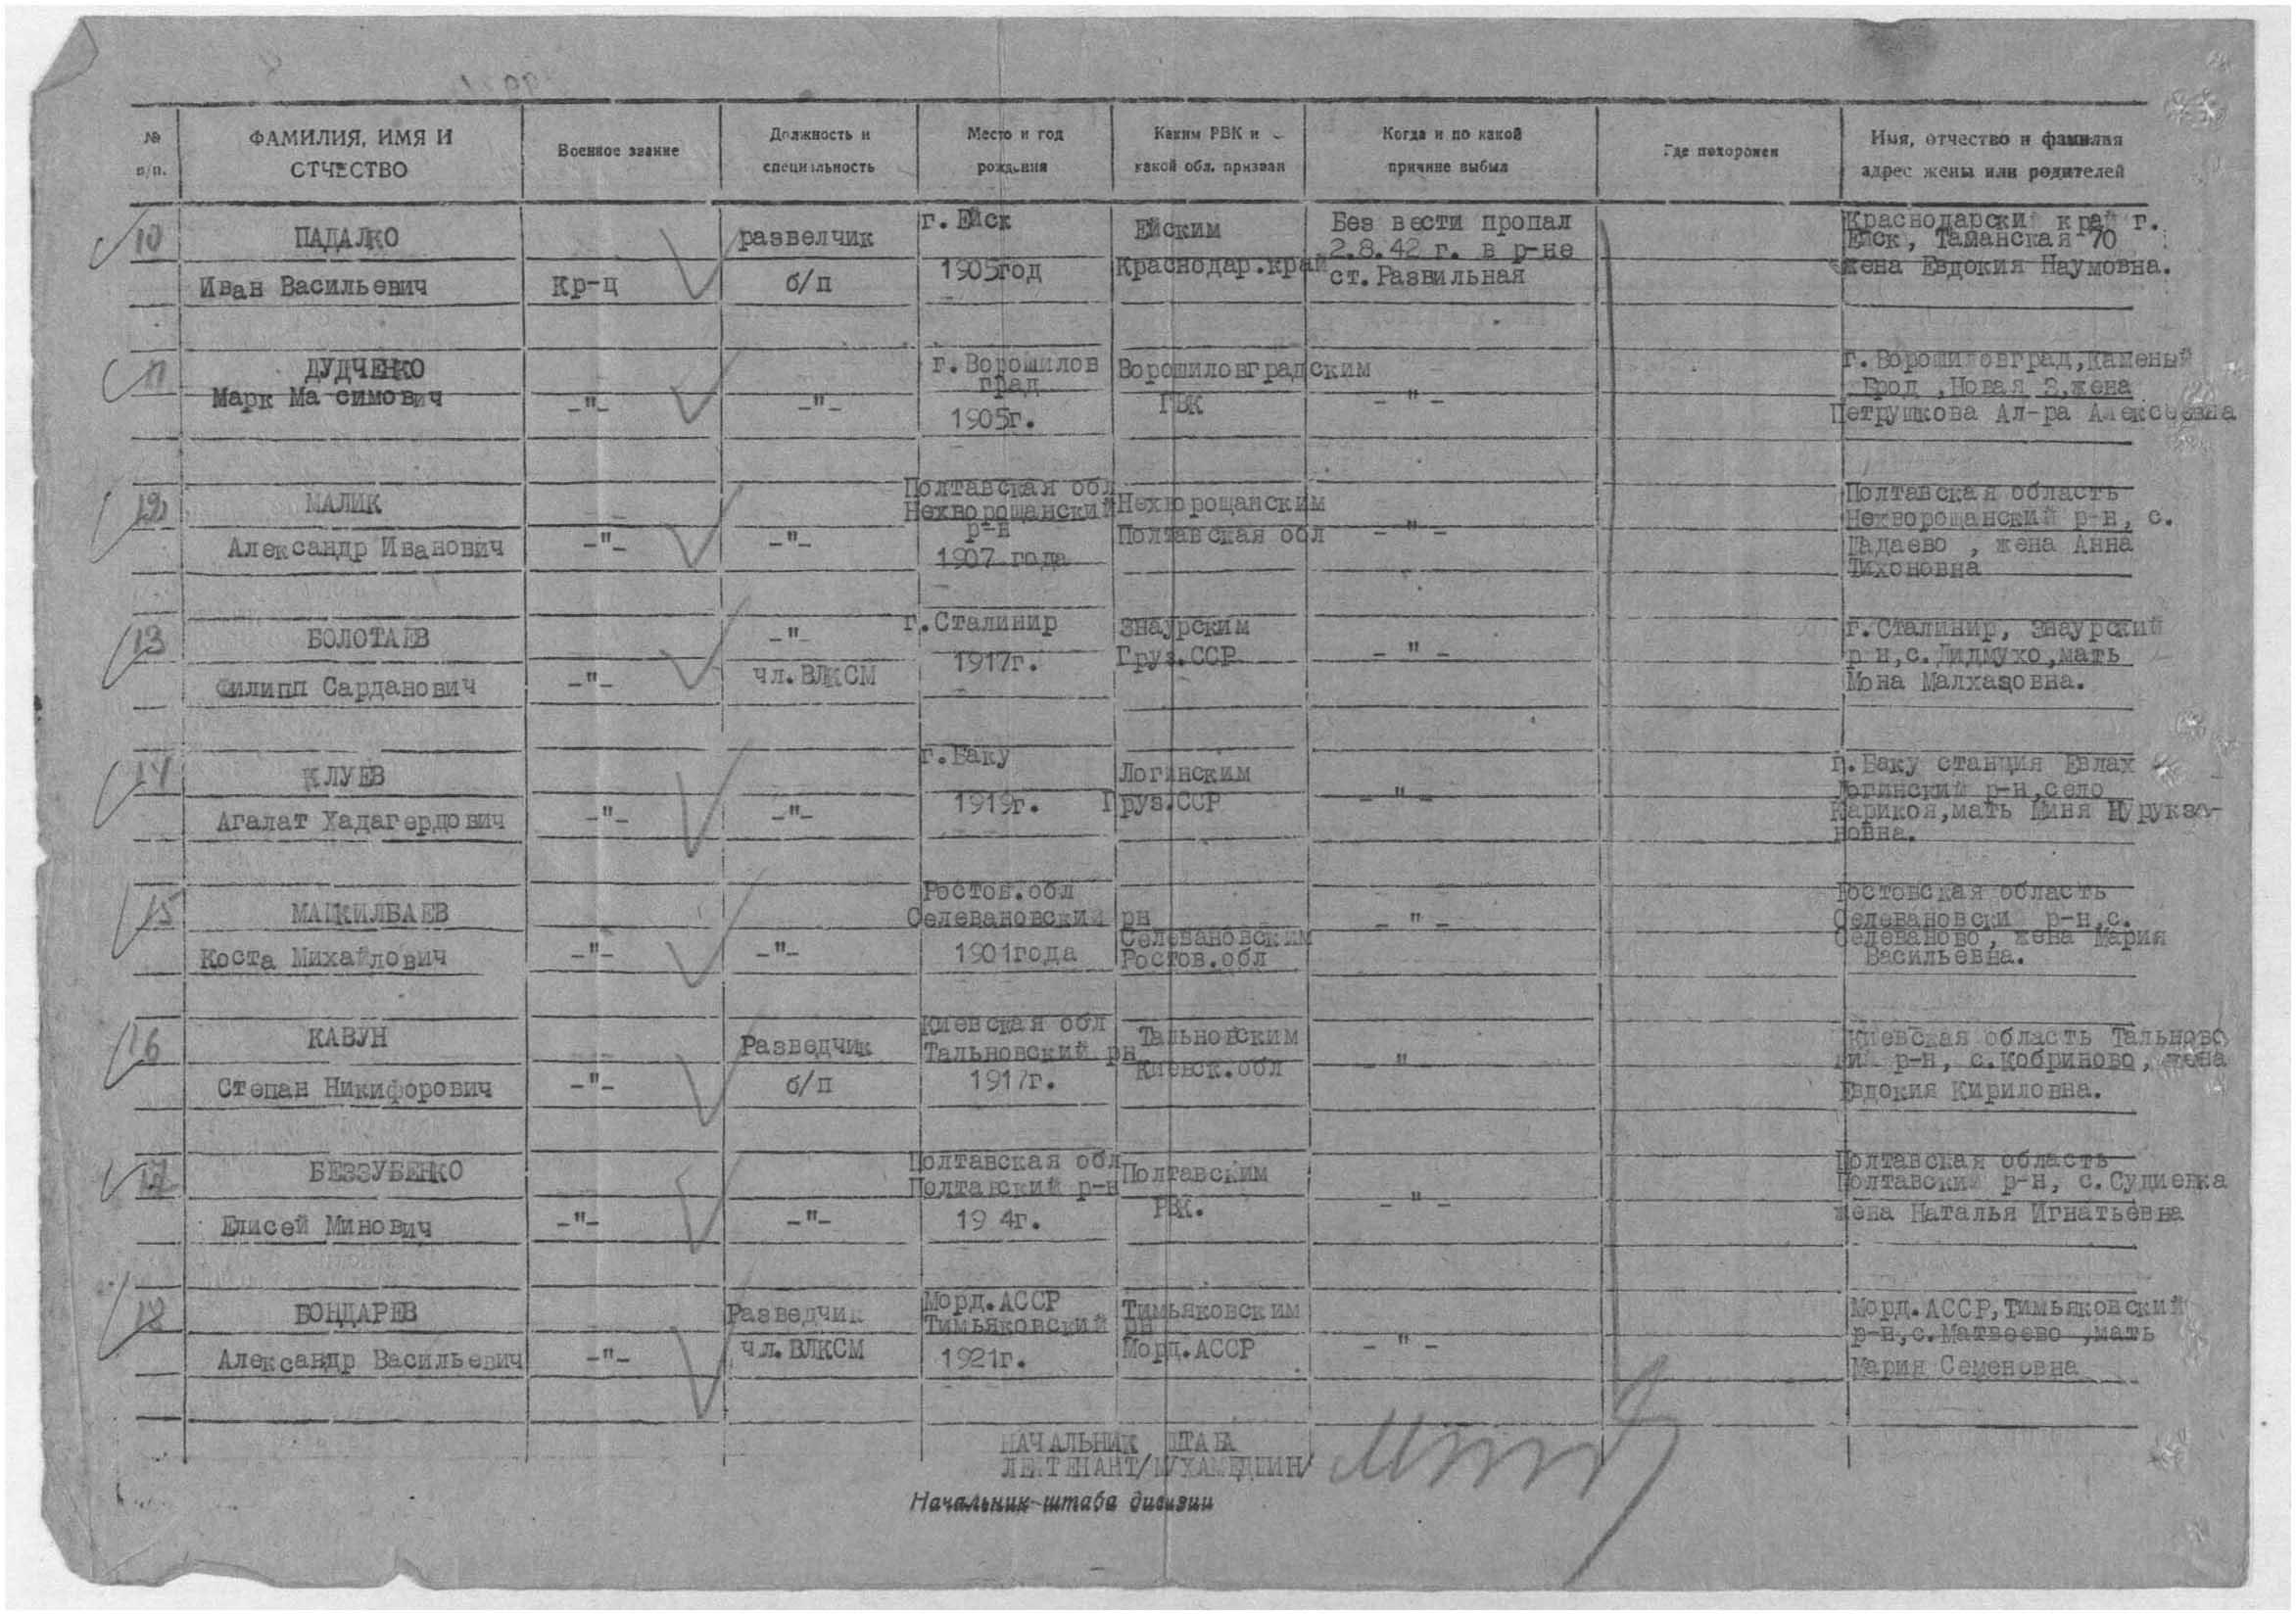 № п/п.
ФАМИЛИЯ, ИМЯ И ОТЧЕСТВО
Военное звание
Должность и специальность
Место и год рождения
Каким РВК и какой обл. призван
Когда и по какой причине выбыл
Где похоронен
Имя, отчество и фамилия адрес жены или родителей
10
ПАДАЛКО
Иван Васильевич
Кр-ц
развелчик
б/п
г. Ейск
1905год
Ейским
Краснодар.край
Без вести пропал
2.8.42 г. в р-не
ст. Развильная
Краснодарски край г.
Ейск, Таманская 70
жена Евдокия Наумовна.
11
ДУДЧЕНКО
Марк Ма симович
-"-
-"-
г. Ворошилов
град
1905г.
Ворошиловградским
ГВК
- " -
г. Ворошиловград, Каменый
Брод , Новая 3, жена
Петрушкова Ал-ра Алексеевна
12
МАЛИК
Александр Иванович
-"-
-"-
Полтавская обл
Нехворощанский
р-н
1907 года
Нехворощанским
Полтавская обл
- " -
Полтавская область
Нехворощанский р-н, с.
жена Анна
Тихоновна
13
БОЛОТАЕВ
Филипп Сарданович
-"-
-"-
чл. ВЛКСМ
г. Сталинир
1917г.
Знаурским
Груз.ССР
- " -
г. Сталинир, Знаурский
р н, с. Дидмухо, мать
Мона Малхазовна.
14
КЛУЕВ
Агалат Хадагердович
-"-
-"-
г. Баку
1919г.
Логинским
Груз.ССР
- " -
г. Баку станция Евлах
Логинский р-н, село
Карикоя, мать Миня Нурукза-
новна.
15
МАЦКИЛБАЕВ
Коста Михайлович
-"-
-"-
Ростов. обл
Селевановский рн
1901года
Селевановским
Ростов. обл
- " -
Ростовская область
Селевановски р-н, с.
Селеваново, жена Мария
Васильевна.
16
КАВУН
Степан Никифорович
-"-
Разведчик
б/п
Киевская обл
Тальновский рн
1917г.
Тальновским
Киевск. обл
- " -
Киевская область Тальновс
кий р-н, с. Кобриново, жена
Евдокия Кириловна.
17
БЕЗЗУБЕНКО
Елисей Минович
-"-
-"-
Полтавская обл
Полтавский р-н
19 4г.
Полтавским
РВК.
- " -
Полтавская область
Полтавский р-н, с. Судиевка
жена Наталья Игнатьевна
18
БОНДАРЕВ
Александр Васильевич
-"-
Разведчик
чл. ВЛКСМ
Морд. АССР
Тимьяковский рн
1921г.
Тимьяковским
Морд. АССР
- " -
Морд. АССР, Тимьяковский
р-н, с. Матвеево , мать
Мария Семеновна
НАЧАЛЬНИК ШТАБА
ЛЕЙТЕНАНТ/МУХАМЕДШИН/
Начальник штаба дивизии